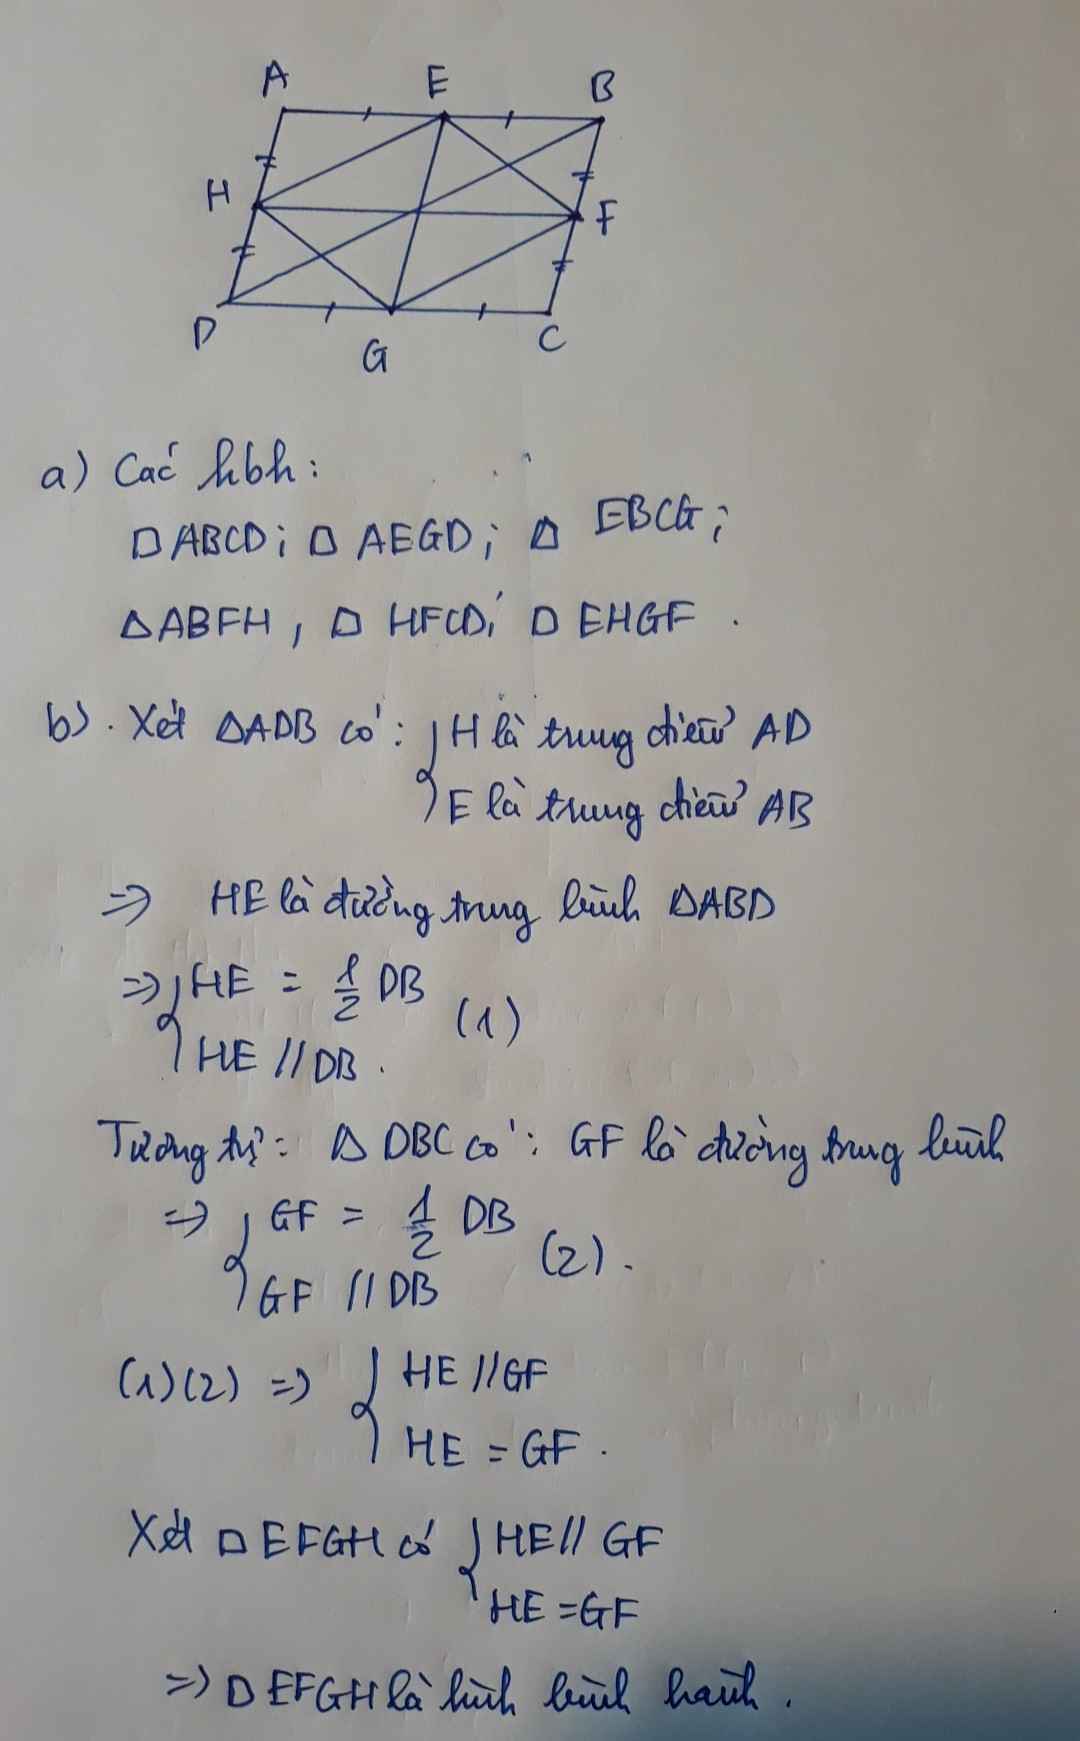 A E B
H F
D G C
a) Các hbh:
□ ABCD; □ AEGD; □ EBCG;
□ ABFH, □ HFCD; □ EHGF.
b) . Xét ΔADB có: { H là trung điểm AD
E là trung điểm AB
=> HE là đường trung bình ΔABD
=> { HE = 1/2 DB (1)
HE // DB.
Tương tự: Δ DBC có: GF là đường trung bình
=> { GF = 1/2 DB (2).
GF // DB
(1)(2) => { HE // GF
HE = GF.
Xét □ EFGH có { HE // GF
HE = GF
=> □ EFGH là hình bình hành.